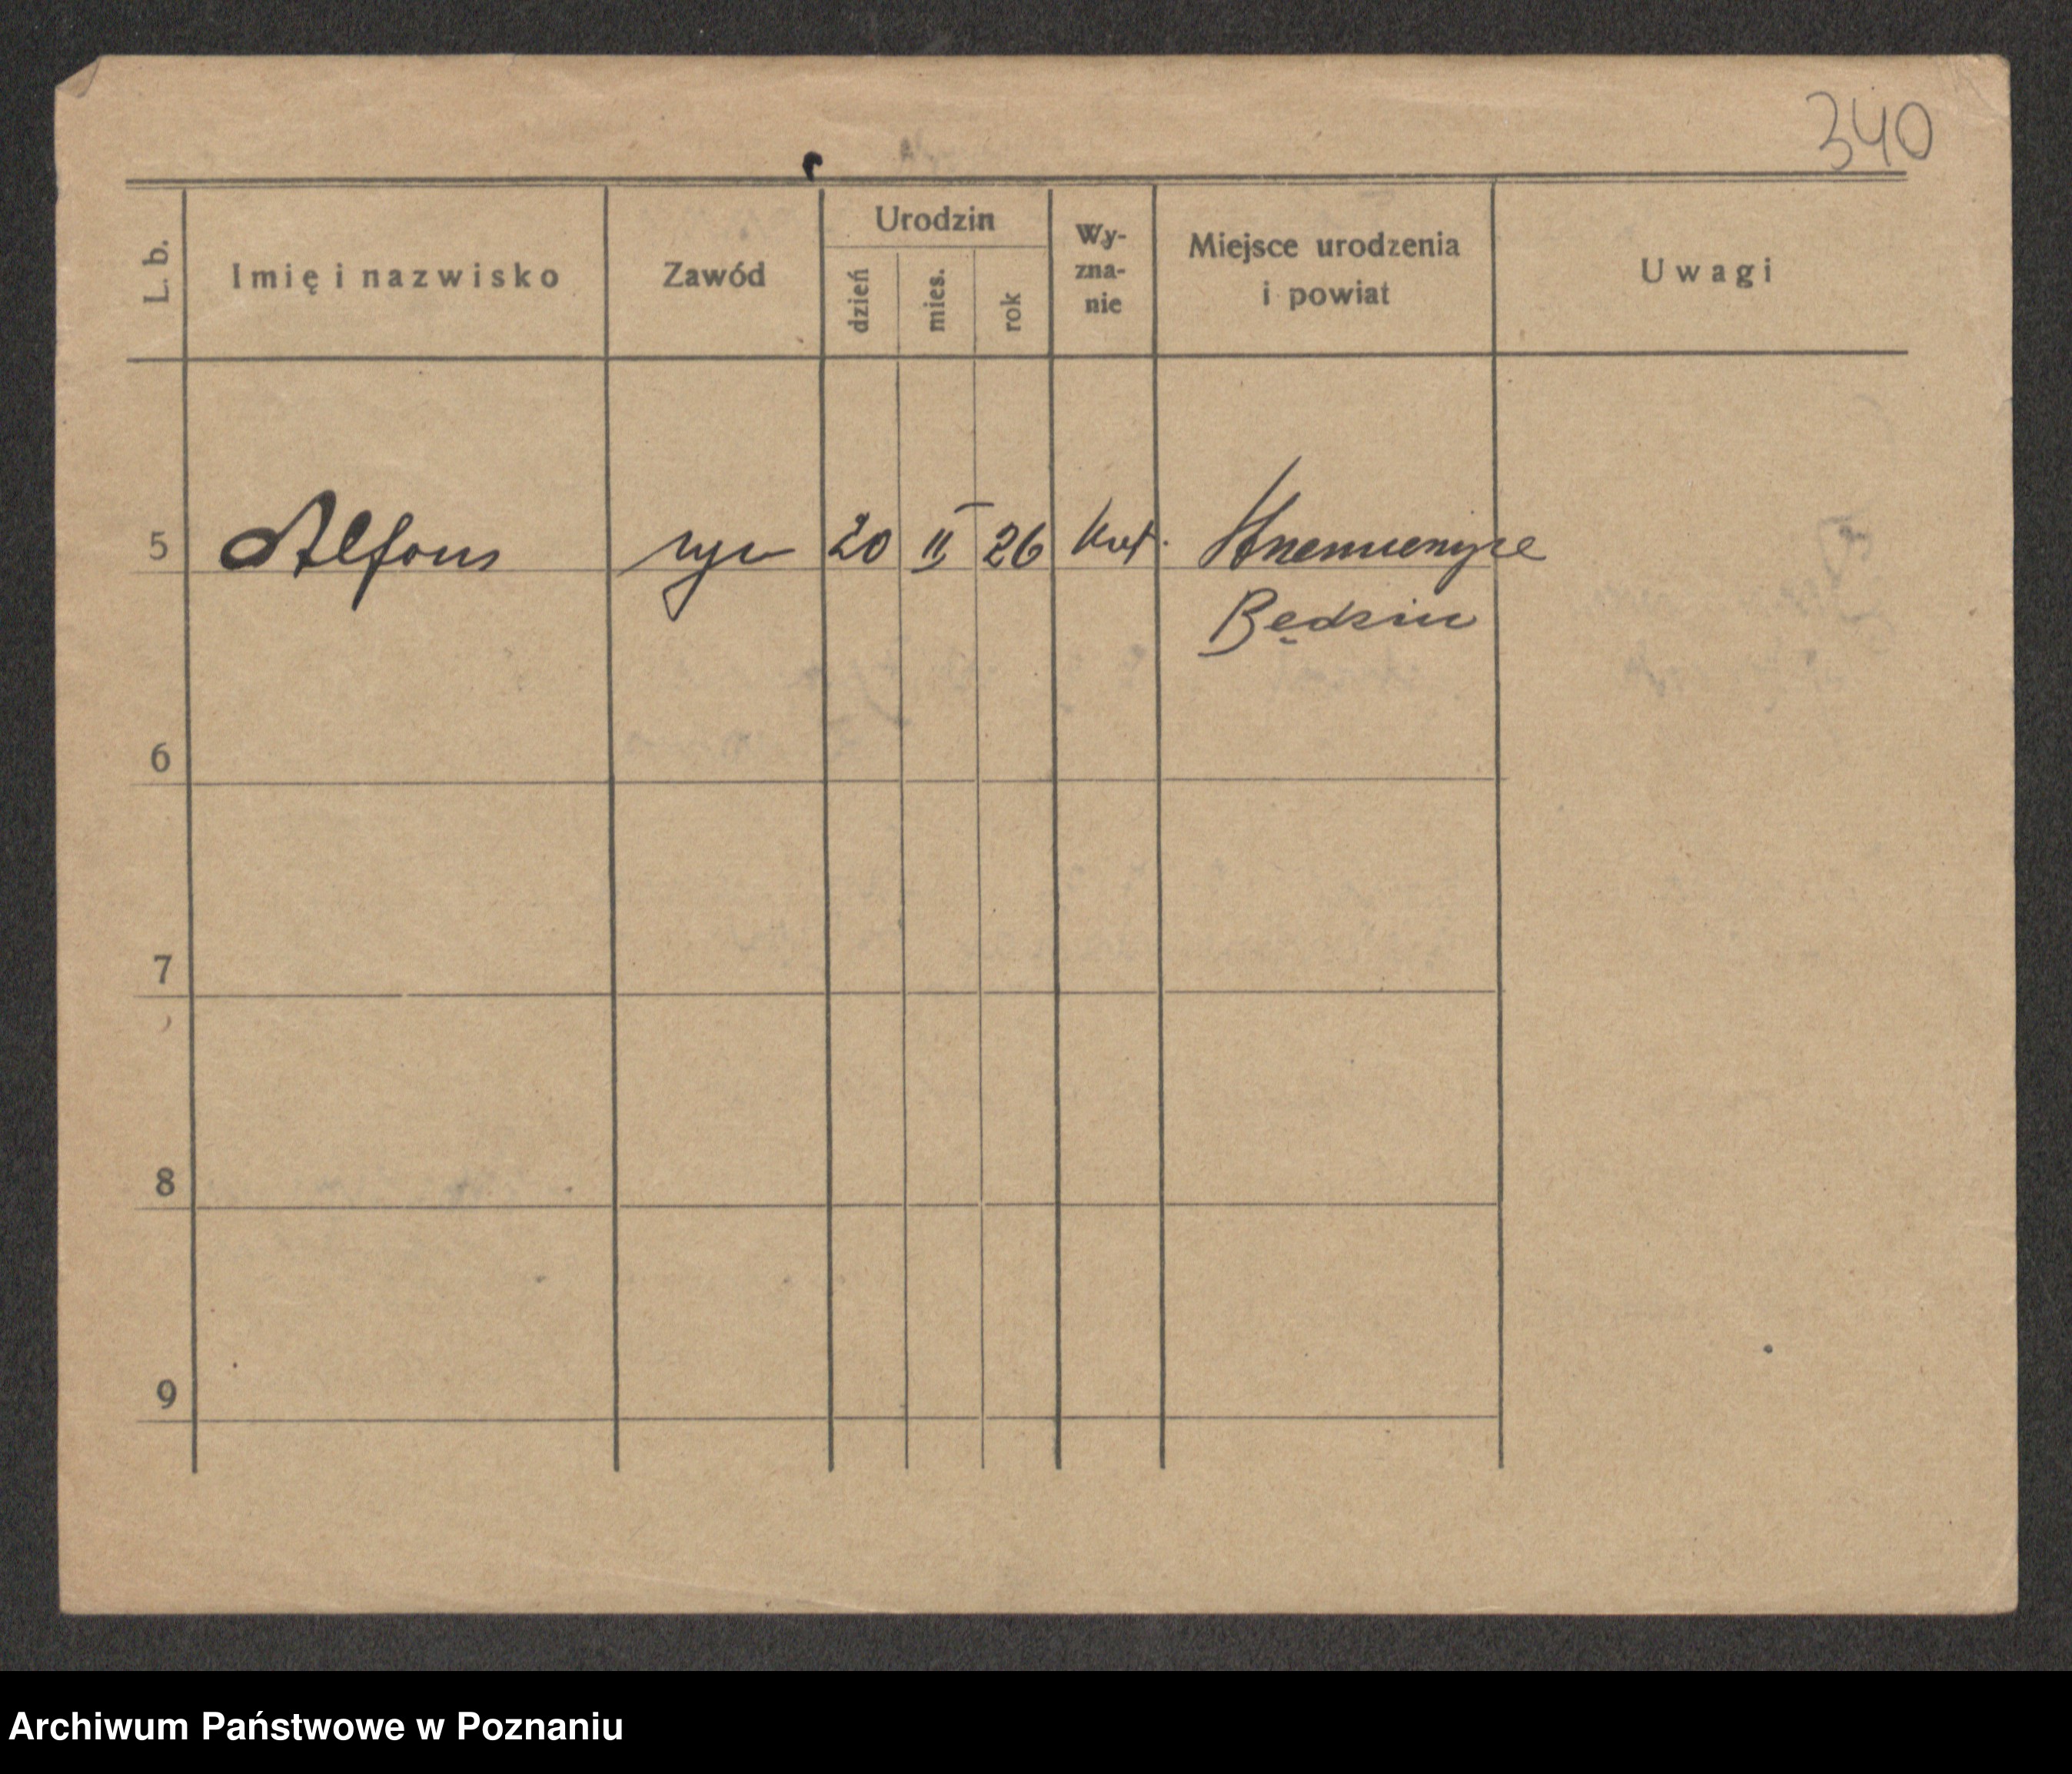 340
L. b.
Imię i nazwisko
Zawód
Urodzin
dzień
mies.
rok
Wy-
zna-
nie
Miejsce urodzenia
i powiat
Uwagi
5 Alfons syn 20 II 26 kat.
Będzin
6
7
8
9
Archiwum Państwowe w Poznaniu